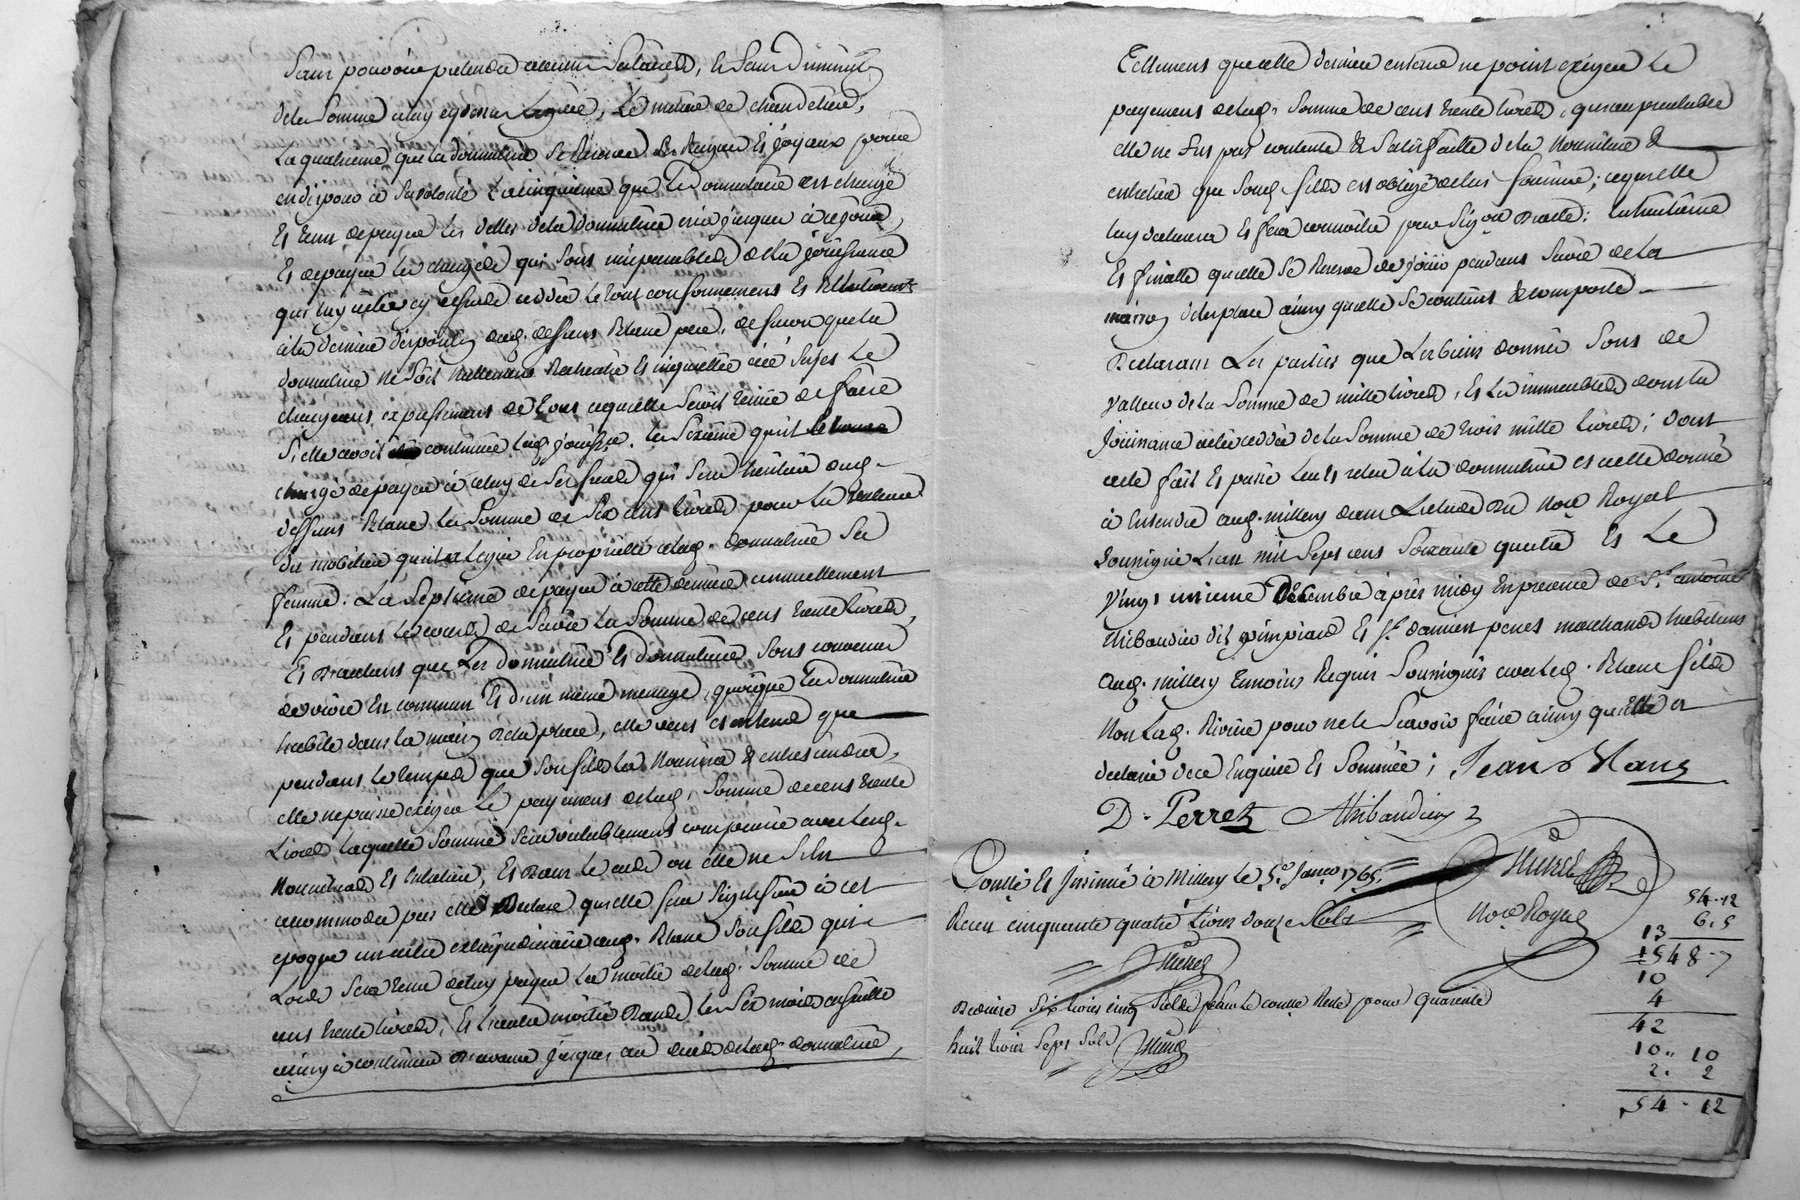 Sans pouvoir pretendre aucuns Salaires, et Sans diminution
de la Somme a luy cy dessus Leguée, le metier de chandelier,
La quatrieme que la donnatrice Se Reserve Les Bagues Et joyaux pour
en disposer à Sa volonté La cinquieme que Le donnataire est chargé
Et tenu de payer les dettes de la donnatrice crées jusques à ce jour,
Et de payer les charges qui sont inseparables de la joüissance
qui luy a été cy dessus cedée le tout conformement Et Relativement
à la derniere disposition dud. deffunt Blanc pere, de facon que la
donnatrice ne soit nullement Recherchée Et inquiettée à ce sujet Le
chargeant expressement de tout ce qu'elle seroit tenüe de faire
Si elle avoit continué lad. joüisse. La Sixieme qu'il
chargé de payer à celuy de Ses freres qui Sera heritier dud.
deffunt Blanc la Somme de Six cent livres pour la valeur
du mobilier qu'il a legué En proprieté à lad. donnatrice Sa
femme. La Septieme de payer à cette derniere annuellement
Et pendant le cours de Sa vie la Somme de cent trente livres,
Et D'autant que Les donnatrice Et donnataire sont convenus
de vivre En commun Et d'un même menage, quoique La donnatrice
habite dans la maison de la place, elle veut et entend que
pendant le temps que Son fils la Nourrira & entretiendra,
elle ne puisse exiger le payement de lad. Somme de cent trente
Livres laquelle Somme Sera compensée avec lad.
Nourriture Et Entretien, Et Dans le cas ou elle ne Se
accommoder pas elle Declare qu'elle fera Signifier à cet
epoque un acte extrajudiciaire aud. Blanc Son fils qui
Lors Sera tenu de luy payer la moitié de lad. Somme de
cent trente livres, Et l'autre moitié Dans les Six mois ensuitte
ainsy à continuer D'avance jusques au decès de lad. donnatrice,
Tellement que cette derniere entend ne point exiger Le
payement de lad. Somme de cent trente livres, qu'au prealable
elle ne fut pas contente & Satisfaitte de la Nourriture &
entretien que Sond. fils est obligé de luy fournir; ce qu'elle
luy declarera Et fera connoitre par Sign.on D'acte; La huitieme
Et finalle qu'elle Se Reserve de joüir pendant Sa vie de la
maison de la place ainsy qu'elle Se contient & comporte
Declarant Les parties que Les biens donnés Sont de
Valleur de la Somme de mille livres, Et Les immeubles dont la
Joüissance a été cedée de la Somme de trois mille livres; Dont
acte fait Et passé leu et releu à la donnatrice et à elle donné
à Entendre aud. millery dans L'etude Du No.re Royal
Soussigné L'an mil Sept cent Soixante quatre Et Le
Vingt unieme Decembre après midy En presence de S.r antoine
thibaudier dit pimpiard Et S.r damien perret marchands habitans
aud. millery temoins Requis Soussignés avec led. Blanc fils
Non lad. Riviere pour ne le Scavoir faire ainsy qu'elle a
declaré de ce Enquise Et Sommée; Jean Blanc
D. Perret Athibaudier
Conllé Et Insinué à Millery le 5.e Janer 1765.
No.re Royal
Recu cinquante quatre livres douze Sols
54-12
6.5
13
1548-7
10
4
Deduire Six livres cinq Sols pour quarante
42
huit livres Sept Sols
10.. 10
2. 2
54-12